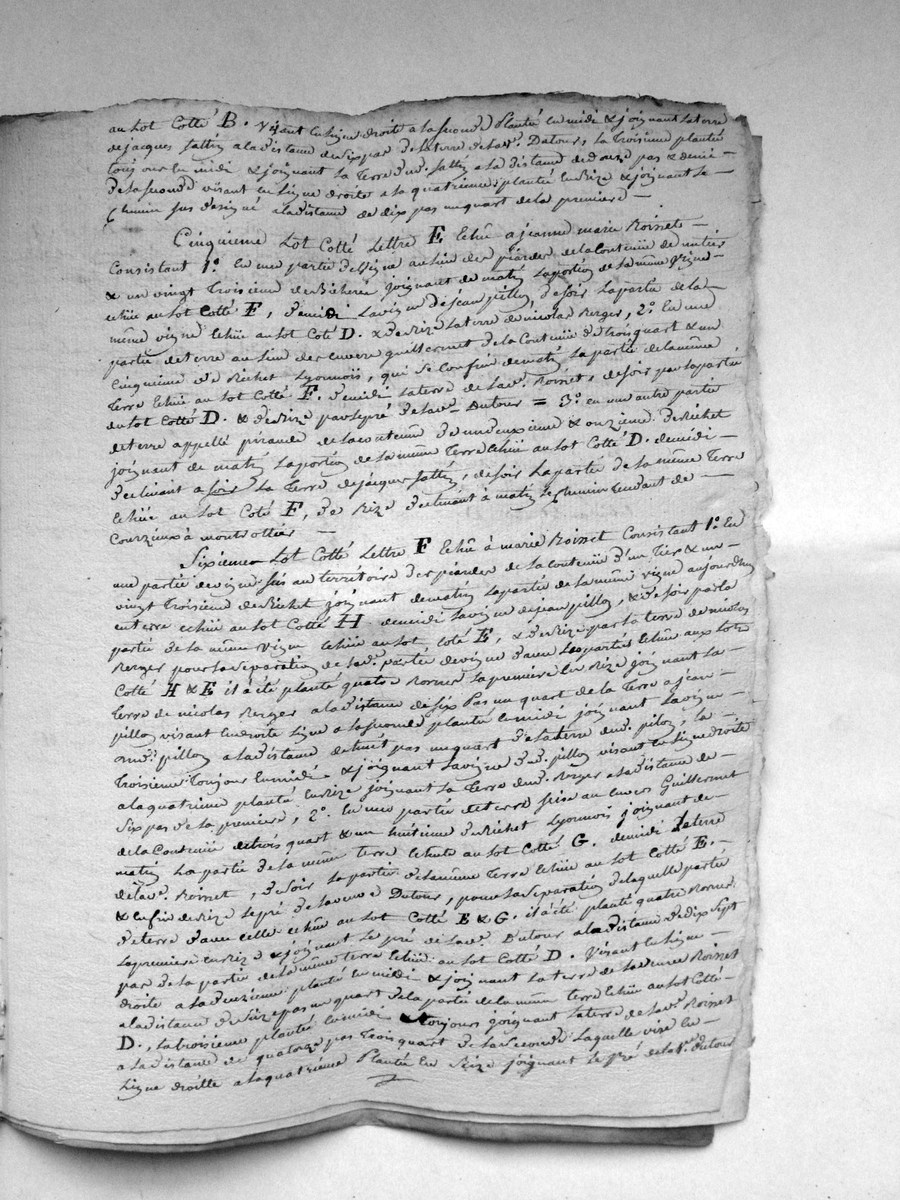 au Lot Cotté B. visant en Ligne droite a la seconde Planté en midi & joignant la terre
de jacques sattin a la distance de six pas de la terre de la ve. Dutour, la Troisieme planté
toujours en midi & joignant la Terre dud. sattin a la distance de douze pas & demi
de la seconde visant en Ligne droite a la quatrieme planté en Bize & joignant le
Chemin sus designé a la distance de dix pas un quart de la premiere —
Cinquieme Lot Cotté Lettre E Echü a jeanne marie Roinet —
Consistant 1o. En une partie de Vigne au lieu des piardes de la Contenüe de un tiers
& un vingt Troisieme de Bicherée joignant de matin la portion de la même Vigne —
echüe au Lot Cotté F, de midi La vigne de jean pillon, de soir La partie de la —
même vigne Echüe au Lot Coté D. & de Bize La terre de nicolas Berger, 2o. En une
partie de terre au lieu des envers guillermet de la Contenüe de trois quart & un
Cinquieme de Bichet Lyonnois, qui se confine de matin La partie de la même
Terre Echüe au Lot Cotté F. de midi La terre de la ve. Roinet, de soir par la partie
du Lot Cotté D. & de Bize par le pré de la ve. Dutour = 3o. en une autre partie
de terre appellé piraude de la contenüe de un deuxieme & onzieme de Bichet
joignant de matin La portion de la même Terre Echüe au Lot Cotté D. de midi —
declinant a soir La Terre de jacques sattin, de soir La partie de la même Terre
Echüe au Lot Coté F, de Bize declinant à matin Le chemin Tendant de —
Courzieux à montrottier —
Sixieme Lot Cotté Lettre F Echü à marie Roinet Consistant 1o. En
une partie de vigne sise au territoire des piardes de la Contenüe d'un Tiers & un —
vingt Troisieme de Bichet joignant de matin La partie de la même vigne aujourdhuy
en terre echüe au Lot Cotté H de midi La vigne de jean pillon, & de soir par la
partie de la même vigne Echüe au Lot Coté E, & de Bize par la terre de nicolas
Berger pour la separation de lad. partie de vigne d'avec Les parties Echüe aux Lots
Cotté H & E il à été planté quatre Bornes La premiere En Bize joignant La
terre de nicolas Berger a la distance de six Pas un quart de la Terre a jean
pillon visant en droite Ligne a la seconde planté en midi joignant La vigne —
aud. pillon a la distance de huit pas un quart de la terre dud. pillon, la —
Troisieme Toujour en midi & joignant La vigne dud. pillon visant en Ligne droite
a la quatrieme planté en Bize joignant La Terre dud. Berger a la distance de
six pas de la premiere, 2o. En une partie de terre sise au envers Guillermet
de la Contenüe de trois quart & un huitieme de Bichet Lyonnois joignant de
matin La partie de la même terre Echute au Lot Cotté G. de midi La terre
de la ve. Roinet, de soir La partie de la même Terre Echüe au Lot Cotté E. —
& enfin de Bize Le pré de la veuve Dutour, pour La Separation de laquelle partie
de terre d'avec celle echüe au Lot Cotté E & G. il à été planté quatre Bornes
La premiere en Bize & joignant Le pré de la ve. Dutour a la distance de dix sept
pas de la partie de la même terre Echüe au Lot Cotté D. Visant en Ligne —
droite a la deuxieme planté en midi & joignant La terre de la veuve Roinet
a la distance de seize pas un quart de la partie de la même terre Echüe au Lot Cotté —
D., La troisieme planté en midi & toujours joignant La terre de la ve. Roinet
a la distance de quatorze pas trois quart de la seconde Laquelle vise en —
Ligne droitte a la quatrieme Planté En Bize joignant Le pré de la ve. Dutour